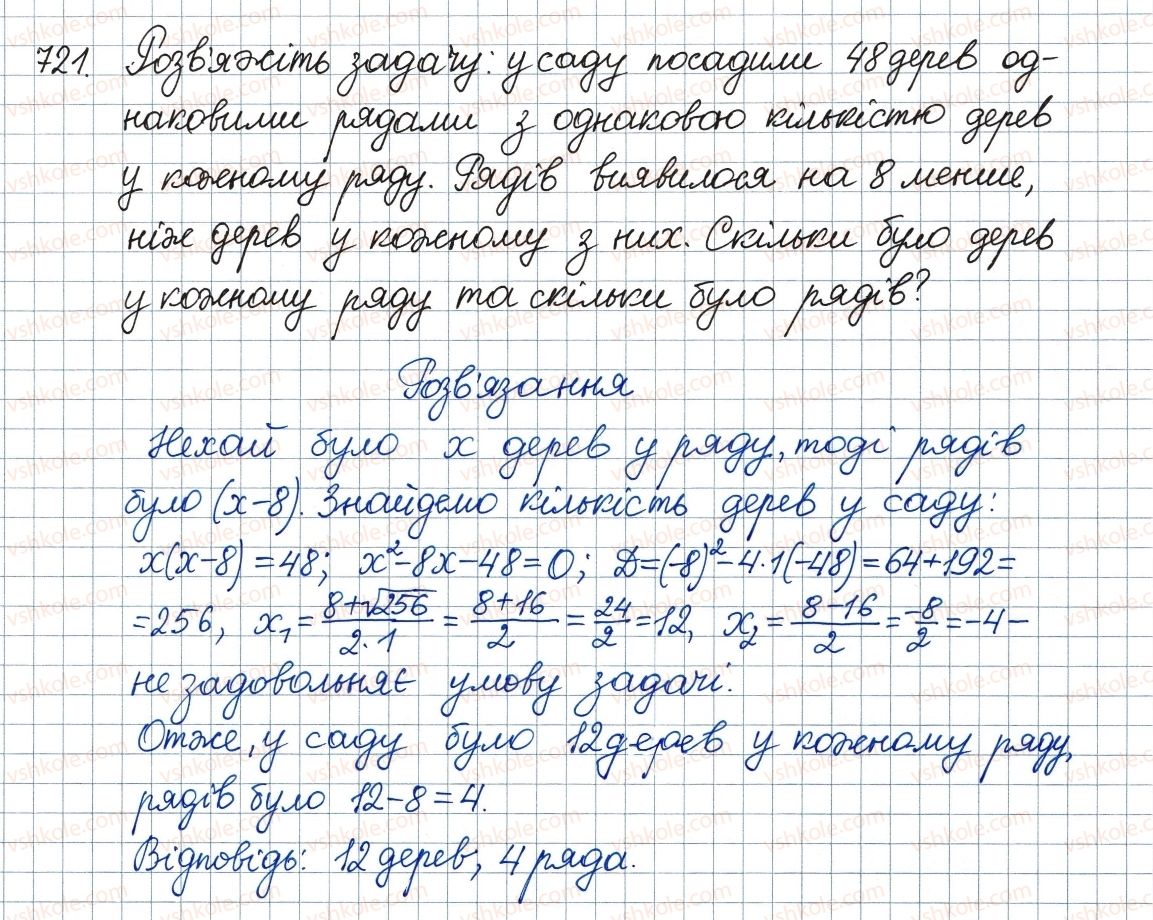 721. Розв'яжіть задачу: у саду посадили 48 дерев од-
наковими рядами з однаковою кількістю дерев
у кожному ряду. Рядів виявилося на 8 менше,
ніж дерев у кожному з них. Скільки було дерев
у кожному ряду та скільки було рядів?
Розв'язання
Нехай було x дерев у ряду, тоді рядів
було (x-8). Знайдемо кількість дерев у саду:
x(x-8)=48; x²-8x-48=0; D=(-8)²-4·1(-48)=64+192=
=256, x₁=(8+√256)/(2·1)=(8+16)/2=24/2=12, x₂=(8-16)/2=-8/2=-4-
не задовольняє умову задачі.
Отже, у саду було 12 дерев у кожному ряду,
рядів було 12-8=4.
Відповідь: 12 дерев; 4 ряда.